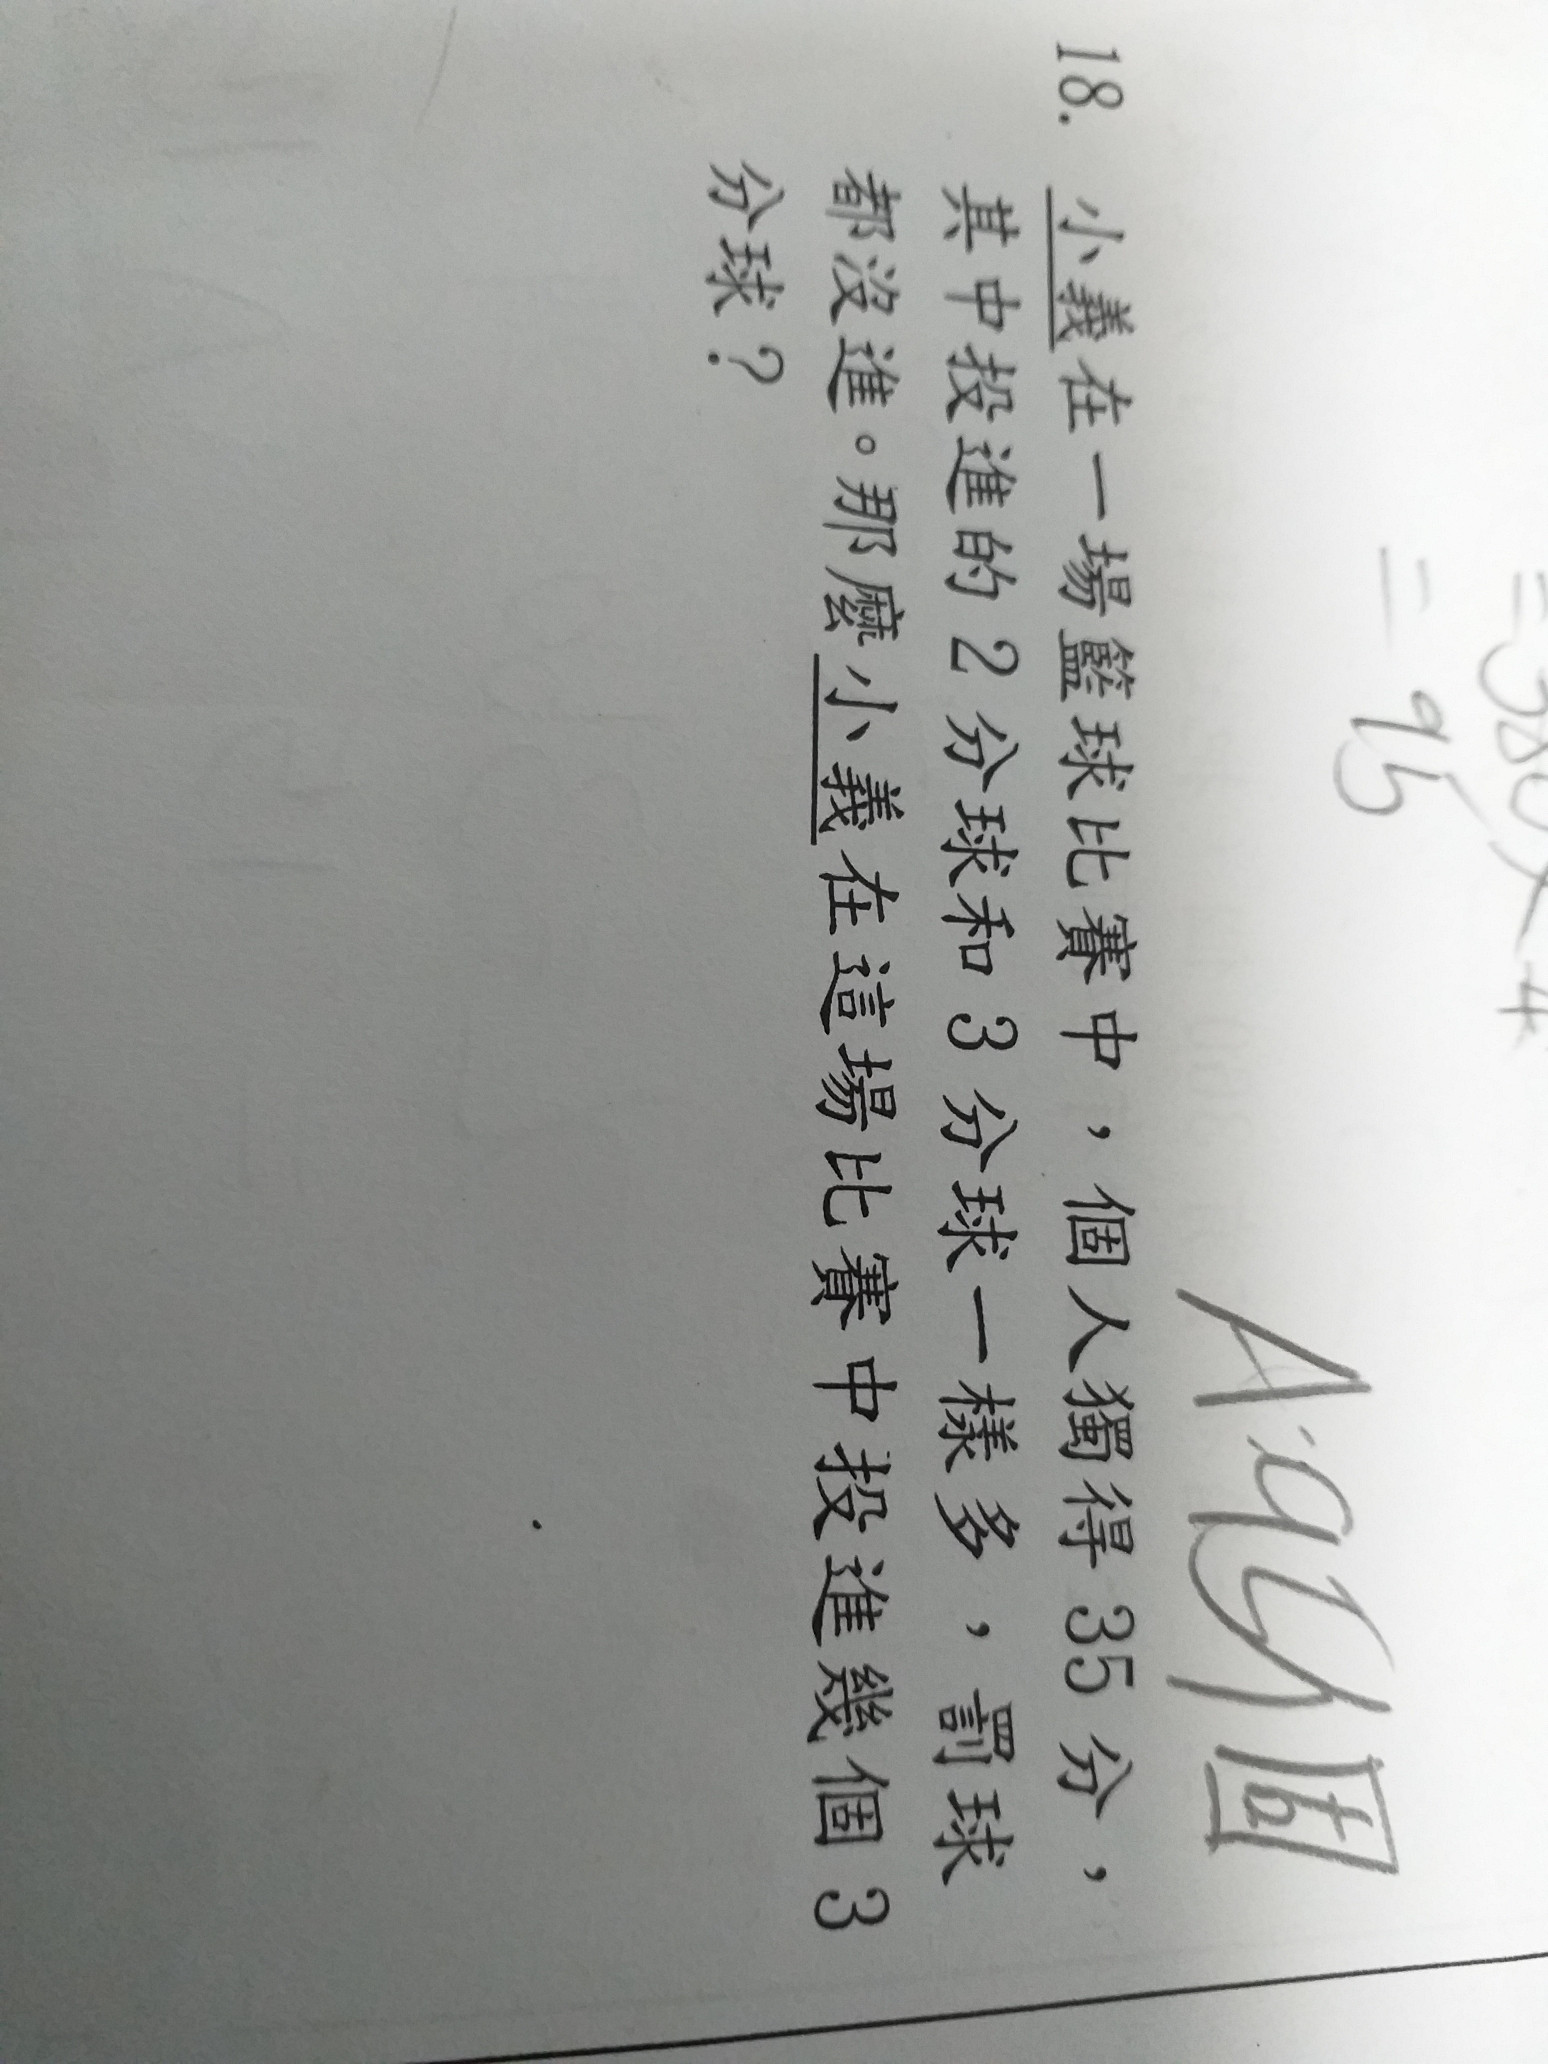 = 380 ÷ 4
= 95
A: 95個
18. 小義在一場籃球比賽中，個人獨得 35 分，
其中投進的 2 分球和 3 分球一樣多，罰球
都沒進。那麼小義在這場比賽中投進幾個 3
分球？